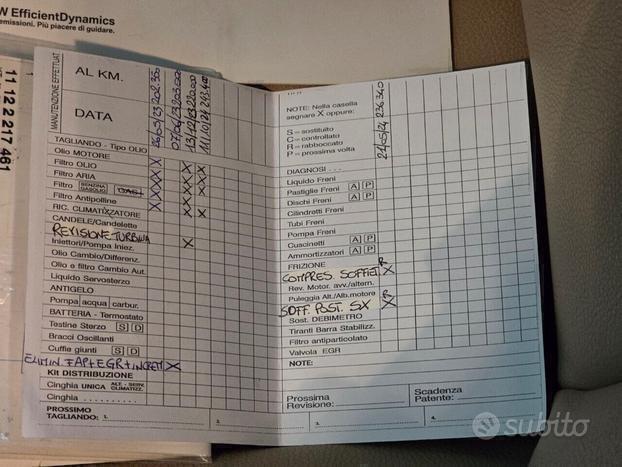 W EfficientDynamics
emissioni. Più piacere di guidare.
11 12 2 217 461
MANUTENZIONE EFFETTUAT.
AL KM.
DATA
26/05/23 202.350
07/06/23 203.000
13/12/23 220.000
11/10/24 243.400
TAGLIANDO - Tipo OLIO
Olio MOTORE X
Filtro OLIO X X X X
Filtro ARIA X X X
Filtro BENZINA GASOLIO GAS X X X
Filtro Antipolline X X X
RIC. CLIMATIZZATORE
CANDELE/Candelette
REVISIONE TURBINA X
Iniettori/Pompa Iniez.
Olio Cambio/Differenz.
Olio e filtro Cambio Aut.
Liquido Servosterzo
ANTIGELO
Pompa acqua carbur.
BATTERIA - Termostato
Testine Sterzo S D
Bracci Oscillanti
Cuffie giunti S D
ELIMIN. FAP+EGR+ X
Kit DISTRIBUZIONE
Cinghia UNICA ALT. - SERV. CLIMATIZZ.
Cinghia . . . . . . . . . .
PROSSIMO
TAGLIANDO: 1. 2.
NOTE: Nella casella
segnare X oppure:
S = sostituito
C = controllato
R = rabboccato
P = prossima volta
21/05/24 236.340
DIAGNOSI . . .
Liquido Freni
Pastiglie Freni A P
Dischi Freni A P
Cilindretti Freni
Tubi Freni
Pompa Freni
Cuscinetti A P
Ammortizzatori A P
FRIZIONE R
COMPRES. SOFFIET. X
Rev. Motor. avv./altern.
Puleggia Alt./Alb.motore R
SOFF. POST. SX X
Sost. DEBIMETRO
Tiranti Barra Stabilizz.
Filtro antiparticolato
Valvola EGR
NOTE:
Prossima
Revisione:
Scadenza
Patente:
3. 4.
subito